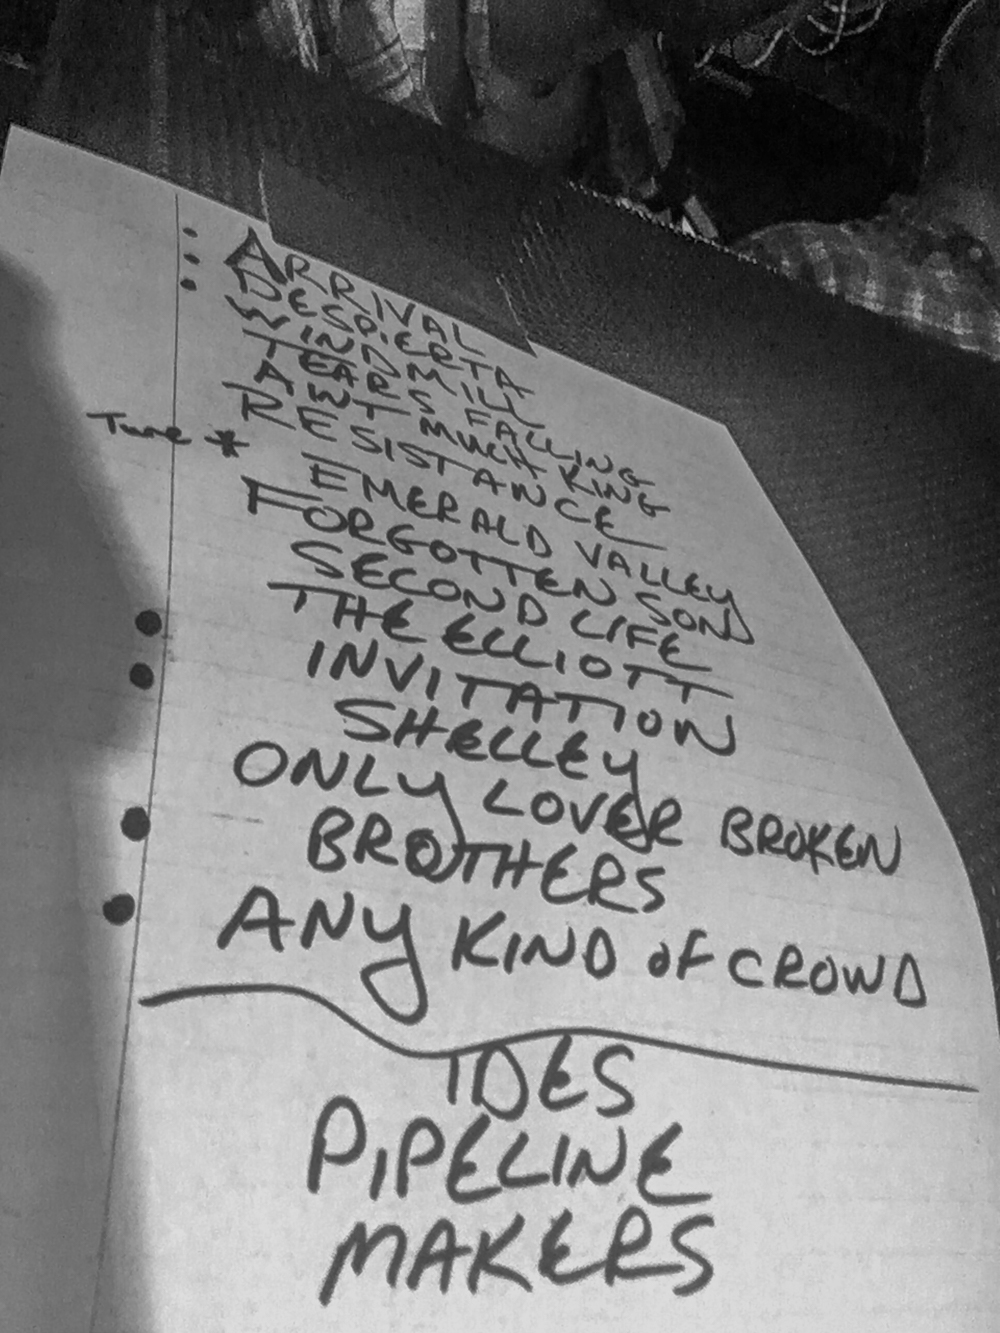 ARRIVAL
DESPIERTA
WINDMILL
TEARS FALLING
AWT MUCH KING
RESISTANCE
Tune *
EMERALD VALLEY
FORGOTTEN SON
SECOND LIFE
THE ELLIOTT
INVITATION
SHELLEY
ONLY LOVER BROKEN
BROTHERS
ANY KIND OF CROWD
IDES
PIPELINE
MAKERS